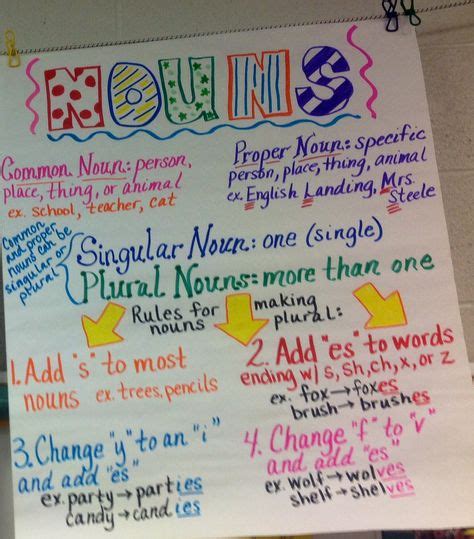 NOUNS
Common Noun: person,
place, thing, or animal
ex. school, teacher, cat
Proper Noun: specific
person, place, thing, animal
ex. English Landing, Mrs.
Steele
Common
and proper
nouns can be
singular or
plural
Singular Noun: one (single)
Plural Nouns: more than one
Rules for making
nouns plural:
1. Add "s" to most
nouns ex. trees, pencils
2. Add "es" to words
ending w/ s, sh, ch, x, or z
ex. fox → foxes
brush → brushes
3. Change "y" to an "i"
and add "es"
ex. party → parties
candy → candies
4. Change "f" to "v"
and add "es"
ex. wolf → wolves
shelf → shelves